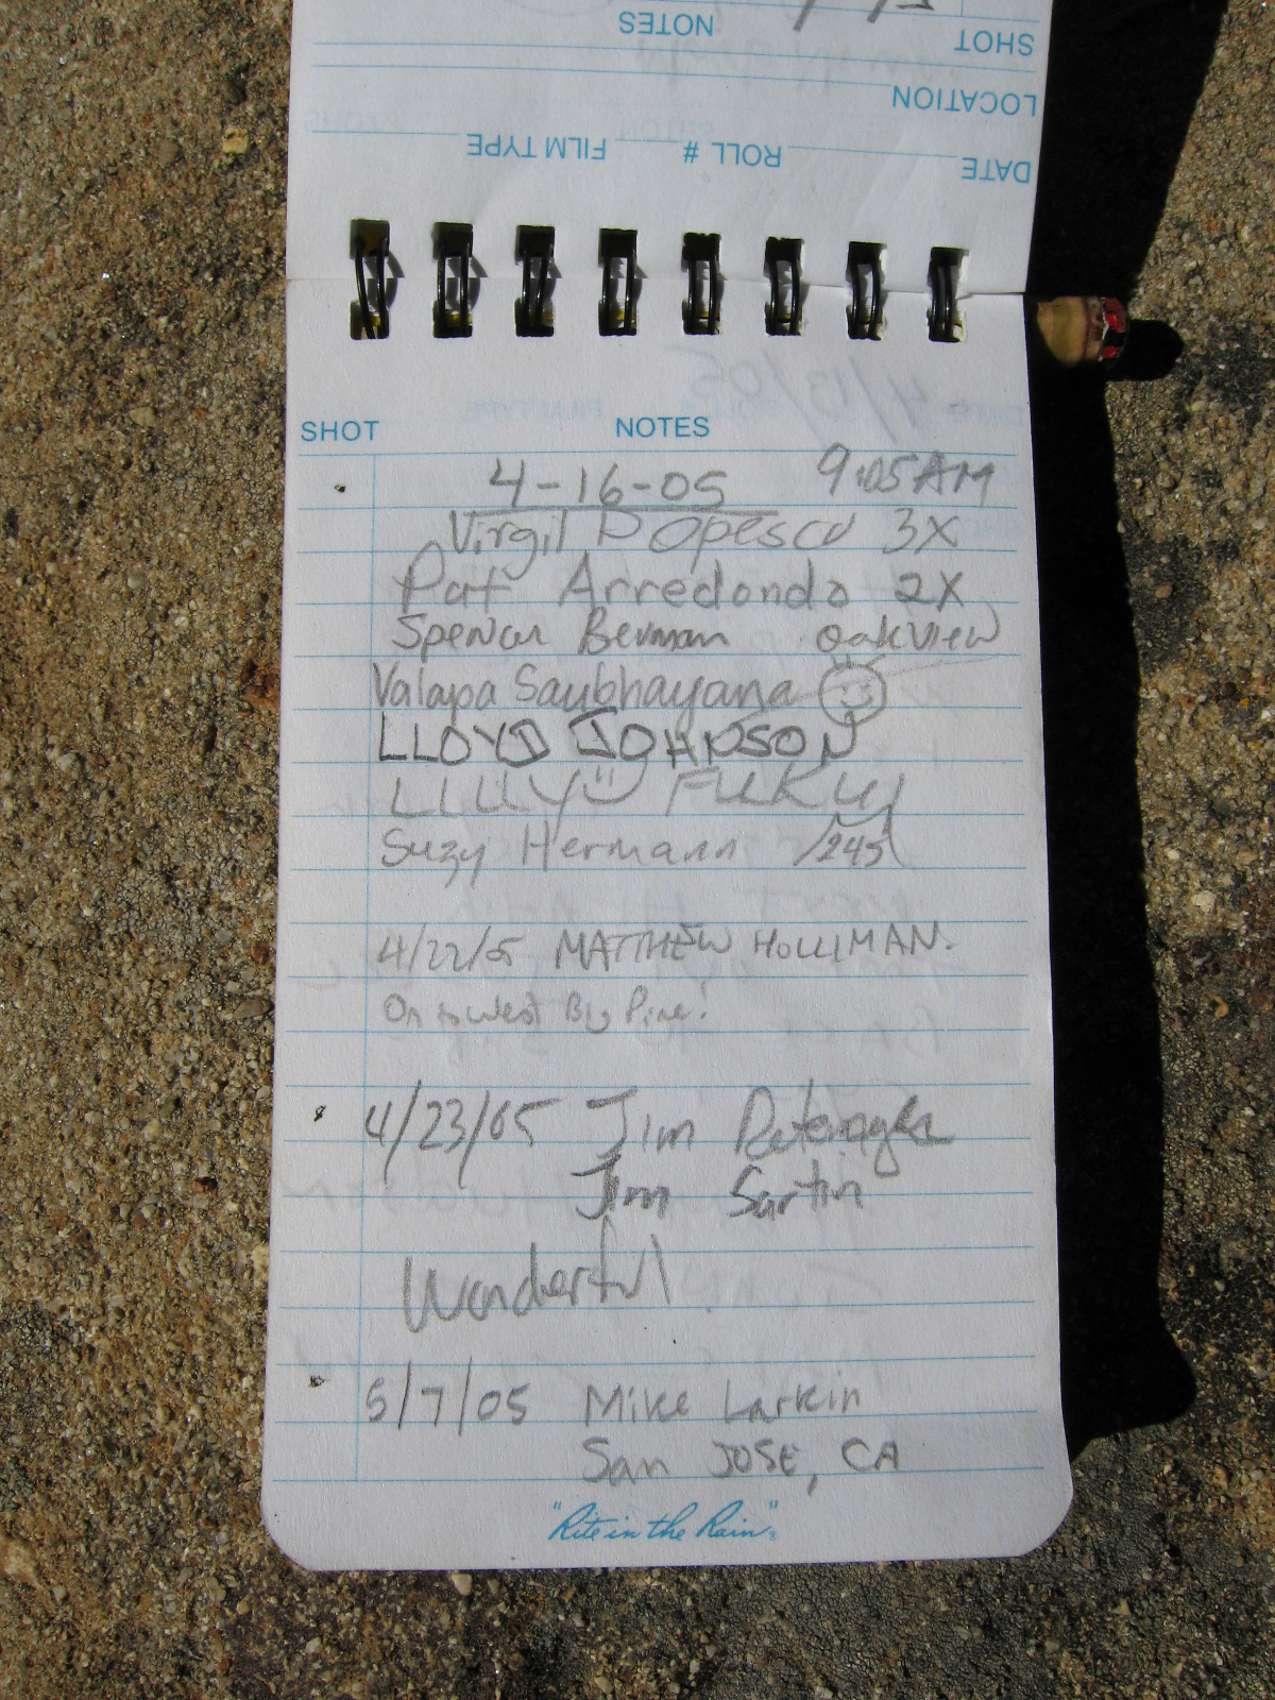 SHOT NOTES
LOCATION
DATE ROLL # FILM TYPE
SHOT NOTES
4-16-05 9:05AM
Virgil Popescu 3X
Pat Arredondo 2X
Spencer Berman oakview
Valapa Saybhayana
LLOYD JOHNSON
LILLY FUKUI
Suzy Hermann /245
4/22/5 MATTHEW HOLLIMAN.
On to West Big Pine!
4/23/05 Jim
Jim Sartin
Wonderful
5/7/05 Mike Larkin
San JOSE, CA
"Rite in the Rain"